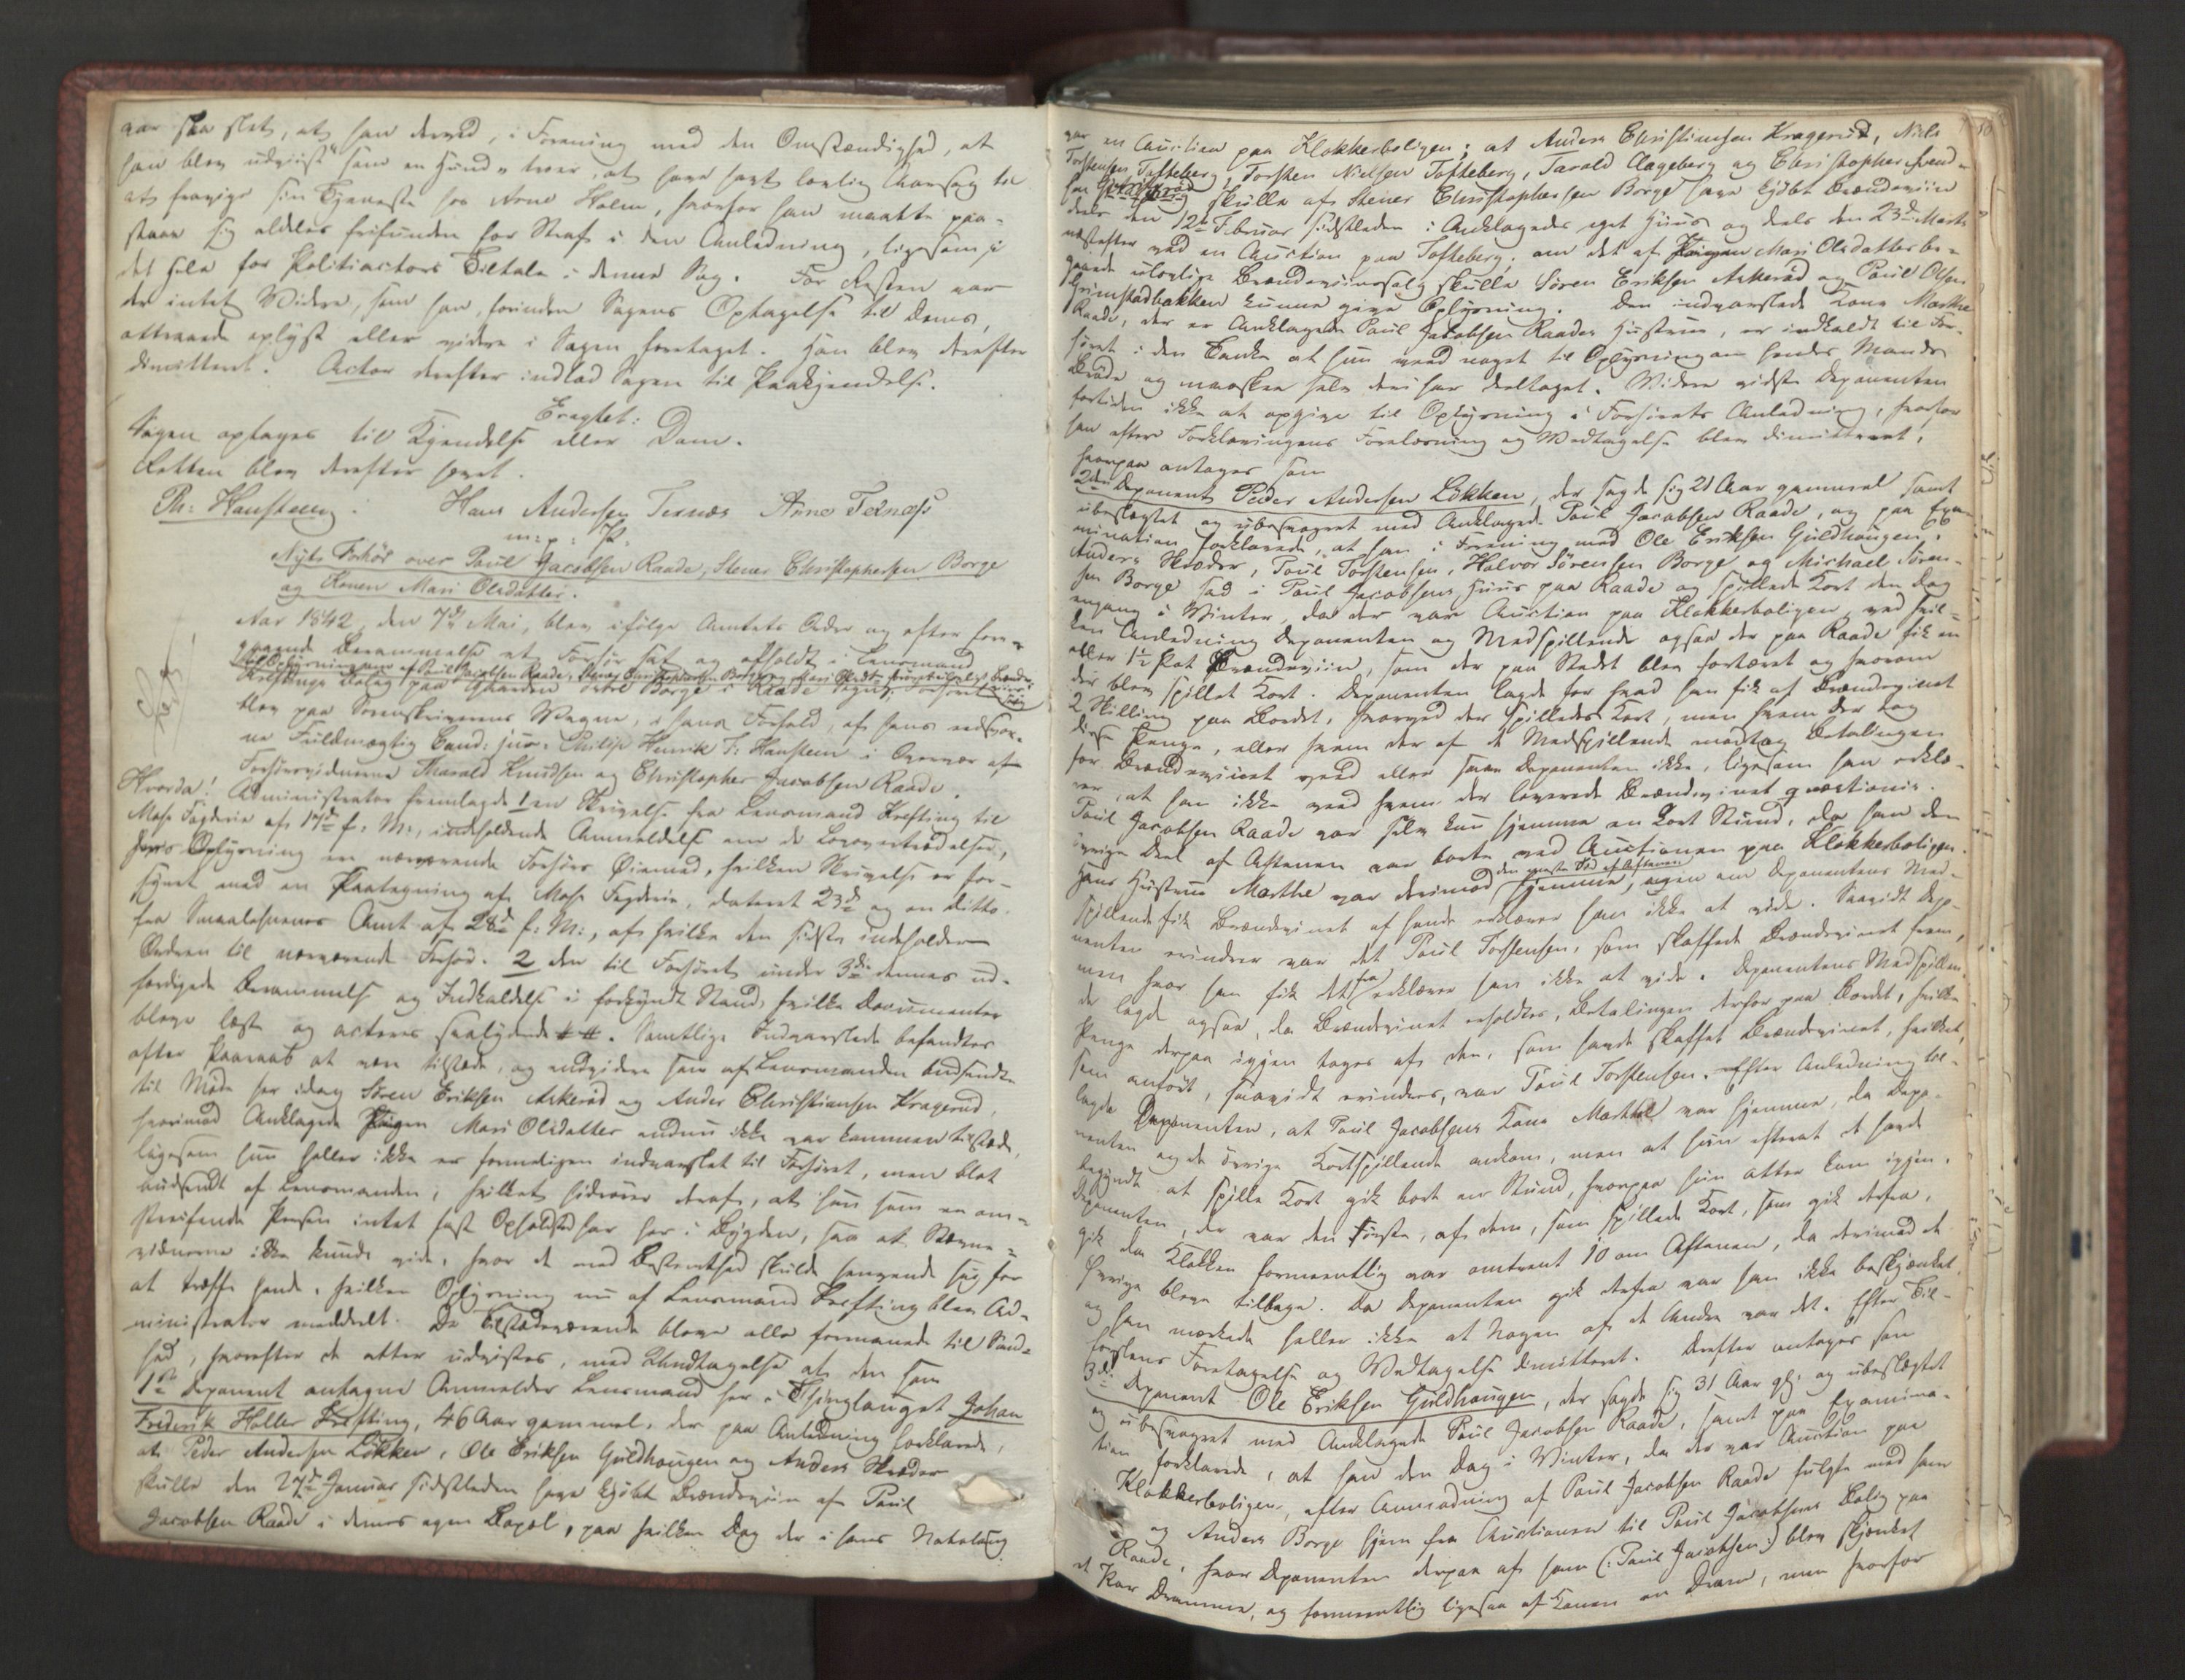 var saa slet, at han derved, i Forening med den Omstændighed, at
han blev udviist som en Hund, troer, at have havt lovlig Aarsag til
at fravige sin Tjeneste hos Arne Holm, hvorfor han maatte paa-
staae sig aldeles frifunden for Straf i den Anledning, ligesom i
det hele for Politiactors Tiltale i denne Sag. For Resten var
der intet Videre, som han, forinden Sagens Optagelse til Doms,
attraaede oplyst eller videre i Sagen foretaget. Han blev derefter
dimitteret. Actor derefter indlod Sagen til Paakjendelse.
Eragtet:
Sagen optages til Kjendelse eller Dom.
Retten blev derefter hævet.
Ph: Hansteen. Hans Andersen Ternæs Arne Teknæs
m: p: P:
Nyt Forhör over Poul Jacobsen Raade, Stener Christophersen Borge
og Konen Mari Olsdatter.
Aar 1842, den 7de Mai, blev ifölge Amtets Order og efter fore-
gaaende Berammelse et Forhör sat og afholdt i Lensmand
til Oplysning om af Poul Jacobsen Raade, Stener Christophersen Borge og Mari Olsdtr
Kreftings Bolig paa Gaarden Borge i Raade Sogn,
blev paa Sorenskriverens Vegne, i hans Forfald, af hans edsvor-
ne Fuldmægtig Cand: jur: Philip Henrik T: Hansteen i Overvær af
Forhörsvidnerne Tharald Knudsen og Christopher Jacobsen Raade.
Hvorda! Administrator fremlagde 1 en Skrivelse fra Lensmand Krefting til
Moss Fogderie af 17de f: M:, indeholdende Anmeldelse om de Lovovertrædelser,
hvis Oplysning er nærværende Forhörs Öiemed, hvilken Skrivelse er for-
synet med en Paategning af Moss Fogderie, dateret 23de og en ditto
fra Smaalehnenes Amt af 28de f: M:, af hvilke den sidste indeholder
Ordren til nærværende Forhör. 2 den til Forhöret under 3die dennes ud-
færdigede Berammelse og Indkaldelse i forkyndt Stand, hvilke Documenter
bleve læste og acteres saalydende ##. Samtlige Indvarslede befandtes
efter Paaraab at være tilstæde, og endvidere havde af Lensmanden budsendte
til Möde her idag Sören Eriksen Askeröd og Anders Christiansen Kragerud,
hvorimod Anklagede Mari Olsdatter endnu ikke var kommen tilstæde,
ligesom hun heller ikke er formeligen indvarslet til Forhöret, men blot
budsendt af Lensmanden, hvilket hidrörer deraf, at hun som en om-
streifende Person intet fast Opholdssted har her i Bygden, saa at Stævne-
vidnerne ikke kunde vide, hvor de med Bestemthed skulde henvende sig for
at træffe hende, hvilken Oplysning nu af Lensmand Krefting blev Ad-
ministrator meddeelt. De Tilstædeværende bleve alle formanede til Sand-
hed, hvorefter de atter udvistes, med Undtagelse af den som
1ste Deponent antagne Anmelder Lensmand her i Thinglauget Johan
Frederik Holler Krefting, 46 Aar gammel, der paa Anledning forklarede,
at Peder Andersen Lökken, Ole Eriksen Guldhaugen og Anders Skræder
skulle den 27de Januar sidstleden have kjöbt Brændeviin af Poul
Jacobsen Raade i dennes egen Bopæl, paa hvilken Dag der i hans Nabolaug
var en Auction paa Klokkerboligen; at Anders Christiansen Kragerud, Niels
Torstensen Tofteberg, Torsten Nielsen Tofteberg, Tarald Aageberg og Christopher Svend-
sen skulle af Stener Christophersen Borge have kjöbt Brændeviin
deels den 12te Februar sidstleden i Anklagedes eget Huus og deels den 23de Marts
næstefter ved en Auction paa Tofteberg; om det af Mari Olsdatter be-
gaaede ulovlige Brændeviinssalg skulle Sören Eriksen Askeröd og Poul Olsen
Grimstadbakken kunne give Oplysning. Den indvarslede Kone Marthe
Raade, der er Anklagede Poul Jacobsen Raades Hustrue, er indkaldt til For-
höret i den Tanke at hun veed noget til Oplysning om hendes Mands
Bröde og maaskee selv deri har deeltaget. Videre vidste Deponenten
fortiden ikke at opgive til Oplysning i Forhörets Anledning, hvorfor
han efter Forklaringens Forelæsning og Vedtagelse blev dimitteret,
hvorpaa antages som
2den Deponent Peder Andersen Lökken, der sagde sig 21 Aar gammel samt
ubeslægtet og ubesvogret med Anklagede Poul Jacobsen Raade, og paa Exa-
mination forklarede, at han i Forening med Ole Eriksen Guldhaugen,
Anders Skræder, Poul Torstensen, Halvor Sörensen Borge og Michael Sören-
sen Borge sad i Poul Jacobsens Huus paa Raade og spillede Kort den Dag
engang i Vinter, da der var Auction paa Klokkerboligen, ved hvil-
ken Anledning Deponenten og Medspillende ogsaa der paa Raade fik en
eller 1½ Pot Brændeviin, som der paa Stedet blev fortæret og hvorom
der blev spillet Kort. Deponenten lagde for hvad han fik af Brændevinet
2 Skilling paa Bordet, hvorved der spilledes Kort, men hvem der tog
disse Penge, eller hvem der af de Medspillende modtog Betalingen
for Brændevinet veed eller saae Deponenten ikke, ligesom han erklæ-
rer, at han ikke veed hvem der leverede Brændevinet qvæstionis.
Poul Jacobsen Raade var selv kun hjemme en kort Stund, da han den
övrige Deel af Aftenen var borte ved Auctionen paa Klokkerboligen.
den meste Tid af Aftenen
Hans Hustrue Marthe var derimod hjemme, men om Deponentens Med-
spillende fik Brændevinet af hende erklærer han ikke at vide. Saavidt Depo-
nenten erindrer var det Poul Torstensen, som skaffede Brændevinet frem,
men hvor han fik det fra erklærer han ikke at vide. Deponentens Medspillen-
de lagde ogsaa, da Brændevinet erholdtes, Betalingen derfor paa Bordet, hvilke
Penge derpaa igjen toges af den, som havde skaffet Brændevinet, hvilket,
som anfört, saavidt erindres, var Poul Torstensen. Efter Anledning til-
lagde Deponenten, at Poul Jacobsens Kone Marthe var hjemme, da Depo-
nenten og de övrige Kortspillende ankom, men at hun efterat de havde
begyndt at spille Kort gik bort en Stund, hvorpaa hun atter kom igjen.
Deponenten, der var den Förste, af dem, som spillede Kort, som gik derfra,
gik da Klokken formeentlig var omtrent 10 om Aftenen, da derimod de
övrige bleve tilbage. Da Deponenten gik derfra var han ikke beskjænket
og han mærkede heller ikke at Nogen af de Andre var det. Efter Til-
förslens Foretagelse og Vedtagelse dimitteret. Derefter antages som
3die Deponent Ole Eriksen Guldhaugen, der sagde sig 31 Aar gl: og ubeslægtet
og ubesvogret med Anklagede Poul Jacobsen Raade, samt paa Examina-
tion forklarede, at han den Dag i Vinter, da der var Auction paa
Klokkerboligen, efter Anmodning af Poul Jacobsen Raade fulgte med ham
og Anders Borge hjem fra Auctionen til Poul Jacobsens Bolig paa
Raade, hvor Deponenten derpaa af ham (: Poul Jacobsen :) blev skjænket
et Par Dramme, og formeentlig ligesaa af Konen en Dram, men hvorfor